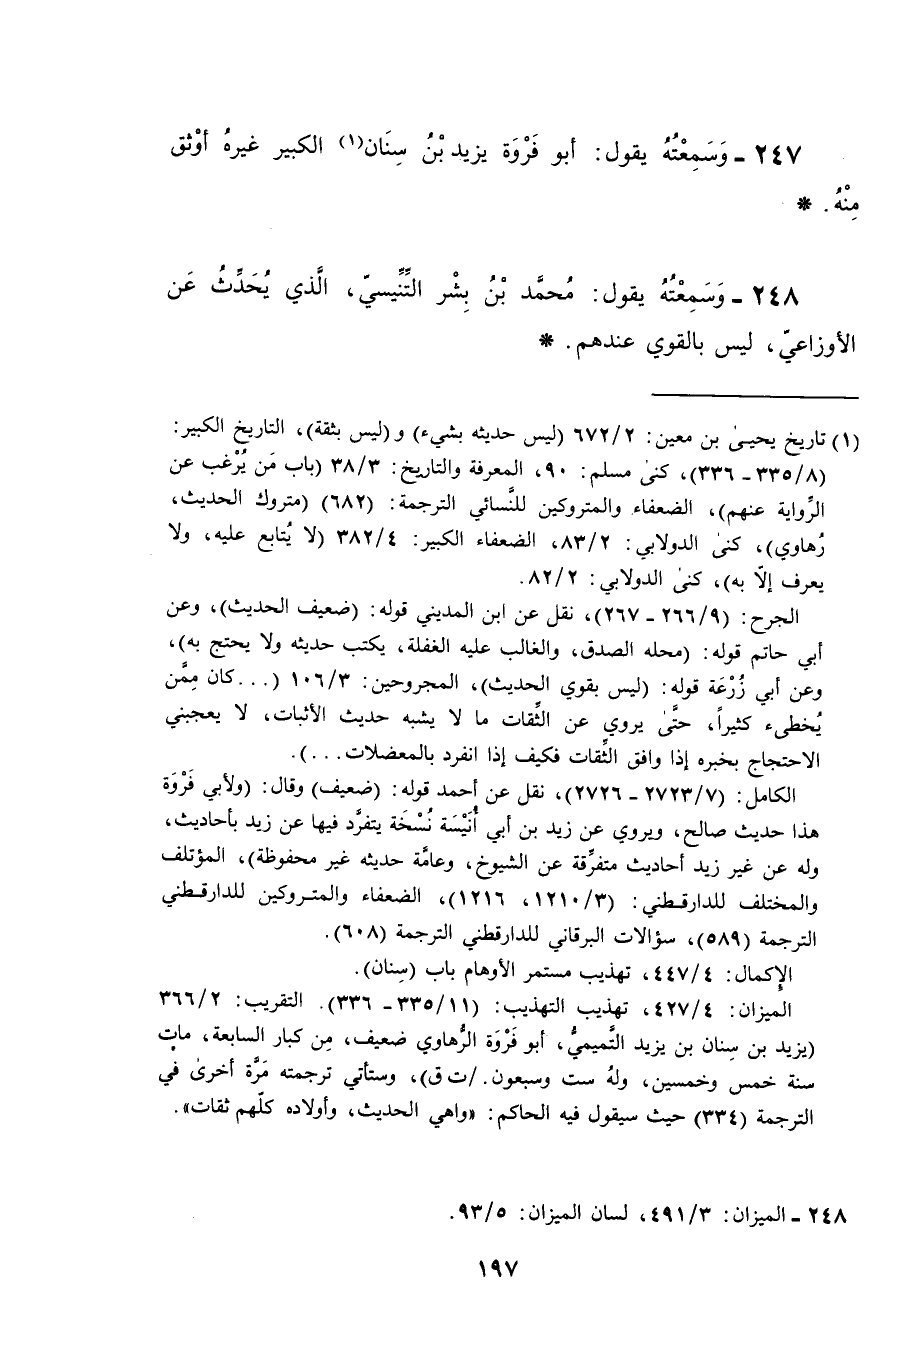 ٢٤٧ ـ وَسَمِعْتُهُ يقول: أبو فَرْوَة يزيد بْنُ سِنَان(١) الكبير غيرهُ أوْثق
مِنْهُ. *
٢٤٨ ـ وَسَمِعْتُهُ يقول: مُحمَّد بْنُ بِشْر التِّنِّيسيّ، الَّذي يُحَدِّثُ عَن
الأوزاعيّ، ليس بالقوي عندهم. *
(١) تاريخ يحيىٰ بن معين: ٦٧٢/٢ (ليس حديثه بشيء) و(ليس بثقة)، التاريخ الكبير:
(٣٣٥/٨ ـ ٣٣٦)، كنىٰ مسلم: ٩٠، المعرفة والتاريخ: ٣٨/٣ (باب مَن يُرْغب عن
الرِّواية عنهم)، الضعفاء والمتروكين للنَّسائي الترجمة: (٦٨٢) (متروك الحديث،
رُهاوي)، كنىٰ الدولابي: ٨٣/٢، الضعفاء الكبير: ٣٨٢/٤ (لا يُتابع عليه، ولا
يعرف إلّا به)، كنىٰ الدولابي: ٨٢/٢.
الجرح: (٢٦٦/٩ ـ ٢٦٧)، نقل عن ابن المديني قوله: (ضعيف الحديث)، وعن
أبي حاتم قوله: (محله الصدق، والغالب عليه الغفلة، يكتب حديثه ولا يحتج به)،
وعن أبي زُرْعَة قوله: (ليس بقوي الحديث)، المجروحين: ١٠٦/٣ (...كان مِمَّن
يُخطىء كثيراً، حتَّىٰ يروي عن الثِّقات ما لا يشبه حديث الأثبات، لا يعجبني
الاحتجاج بخبره إذا وافق الثِّقات فكيف إذا انفرد بالمعضلات...).
الكامل: (٢٧٢٣/٧ ـ ٢٧٢٦)، نقل عن أحمد قوله: (ضعيف) وقال: (ولأبي فَرْوَة
هذا حديث صالح، ويروي عن زيد بن أبي أُنَيْسَة نُسْخَة يتفرَّد فيها عن زيد بأحاديث،
وله عن غير زيد أحاديث متفرِّقة عن الشيوخ، وعامَّة حديثه غير محفوظة)، المؤتلف
والمختلف للدارقطني: (١٢١٠/٣، ١٢١٦)، الضعفاء والمتروكين للدارقطني
الترجمة (٥٨٩)، سؤالات البرقاني للدارقطني الترجمة (٦٠٨).
الإكمال: ٤٤٧/٤، تهذيب مستمر الأوهام باب (سِنان).
الميزان: ٤٢٧/٤، تهذيب التهذيب: (٣٣٥/١١ ـ ٣٣٦). التقريب: ٣٦٦/٢
(يزيد بن سِنان بن يزيد التَّميميُّ، أبو فَرْوَة الرُّهاوي ضعيف، مِن كبار السابعة، مات
سنة خمس وخمسين، ولهُ ست وسبعون./ت ق)، وستأتي ترجمته مَرَّة أخرىٰ في
الترجمة (٣٣٤) حيث سيقول فيه الحاكم: «واهي الحديث، وأولاده كلّهم ثقات».
٢٤٨ ـ الميزان: ٤٩١/٣، لسان الميزان: ٩٣/٥.
١٩٧